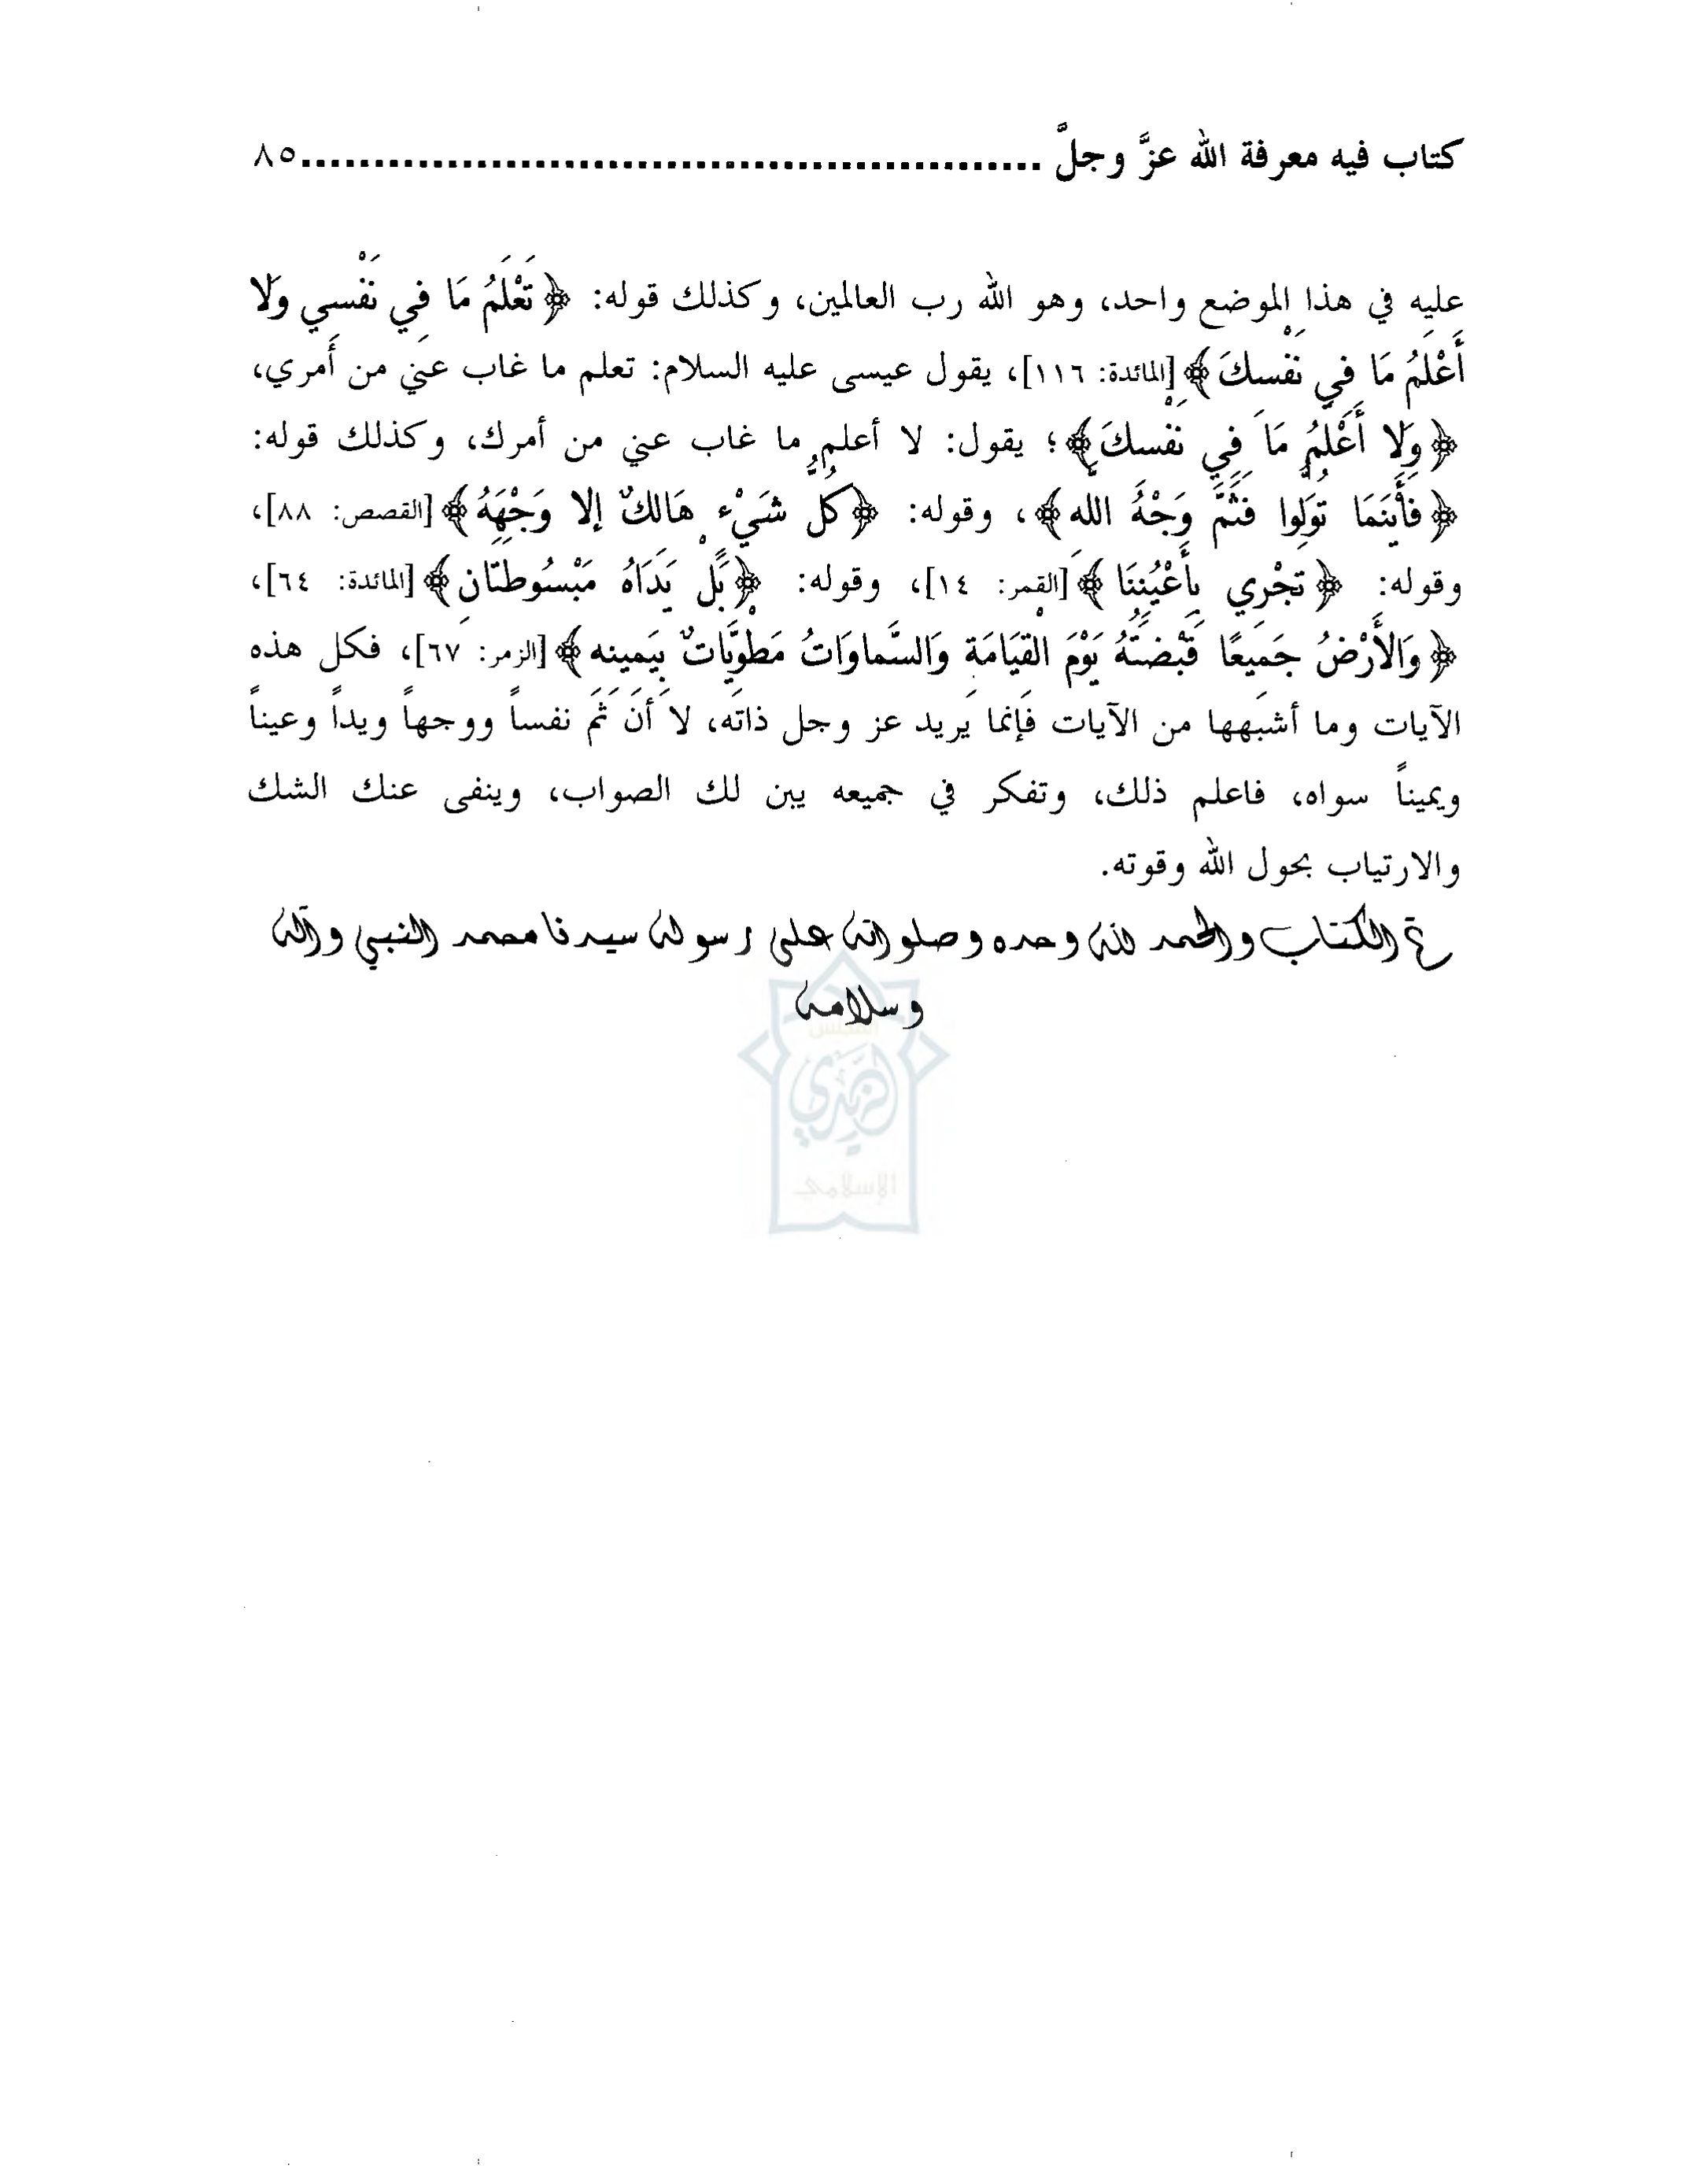 كتاب فيه معرفة الله عزَّ وجلَّ ..................................................٨٥
عليه في هذا الموضع واحد، وهو الله رب العالمين، وكذلك قوله: ﴿تَعْلَمُ مَا فِي نَفْسِي وَلا
أَعْلَمُ مَا فِي نَفْسِكَ﴾[المائدة: ١١٦]، يقول عيسى عليه السلام: تعلم ما غاب عني من أمري،
﴿وَلا أَعْلَمُ مَا فِي نَفْسِكَ﴾؛ يقول: لا أعلم ما غاب عني من أمرك، وكذلك قوله:
﴿فَأَيْنَمَا تُوَلُّوا فَثَمَّ وَجْهُ الله﴾، وقوله: ﴿كُلُّ شَيْءٍ هَالِكٌ إِلا وَجْهَهُ﴾[القصص: ٨٨]،
وقوله: ﴿تَجْرِي بِأَعْيُنِنَا﴾[القمر: ١٤]، وقوله: ﴿بَلْ يَدَاهُ مَبْسُوطَتَانِ﴾[المائدة: ٦٤]،
﴿وَالأَرْضُ جَمِيعًا قَبْضَتُهُ يَوْمَ الْقِيَامَةِ وَالسَّماوَاتُ مَطْوِيَّاتٌ بِيَمِينِهِ﴾[الزمر: ٦٧]، فكل هذه
الآيات وما أشبهها من الآيات فإنما يريد عز وجل ذاته، لا أن ثَم نفساً ووجهاً ويداً وعيناً
ويميناً سواه، فاعلم ذلك، وتفكر في جميعه يبن لك الصواب، وينفى عنك الشك
والارتياب بحول الله وقوته.
تم الكتاب والحمد لله وحده وصلواته على رسوله سيدنا محمد النبي وآله
وسلامه
المجلس
الزيدي
الإسلامي